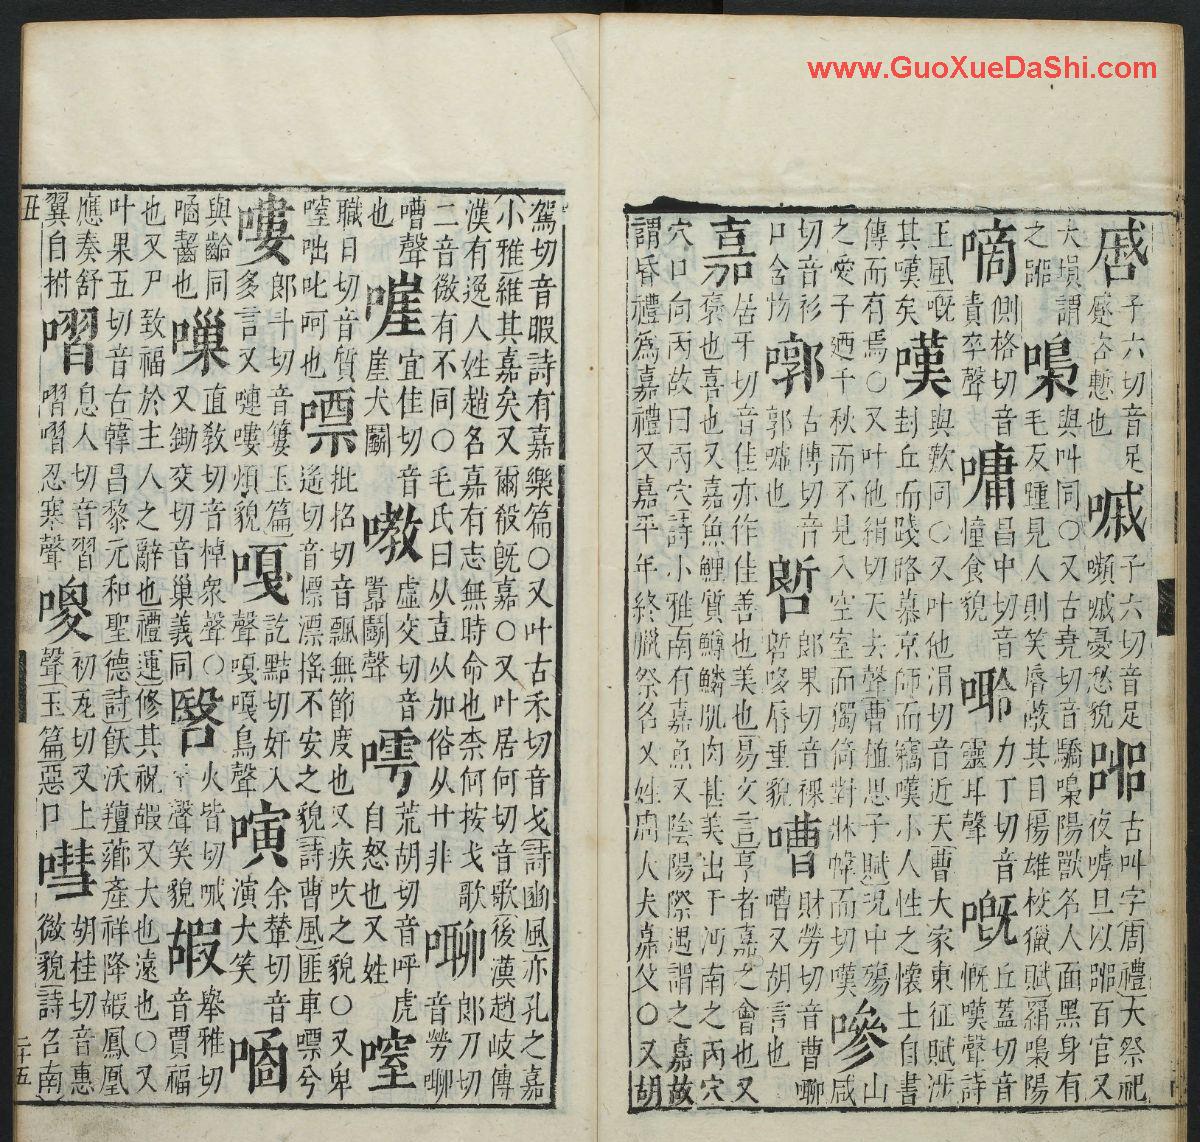 子六切音足
蹙咨慙也
嘁
子六切音足
嚬嘁憂愁貌
嘂
古叫字周禮大祭祀
夜嘑旦以嘂百官又
大塤謂
之嘂
嘄
與叫同〇又古堯切音驕嘄陽獸名人面黑身有
毛反踵見人則笑脣蔽其目揚雄校獵賦羂嘄陽
嘀
側格切音
責卒聲
嘃
昌中切音
憧食貌
力丁切音
靈耳聲
嘅
丘蓋切音
慨嘆聲詩
王風嘅
其嘆矣
嘆
與歎同〇又叶他涓切音近天曹大家東征賦涉
封丘而踐路慕京師而竊嘆小人性之懷土自書
傳而有焉〇又叶他絹切天去聲曹植思子賦況中殤
之夭子迺千秋而不見入空室而獨倚對牀幃而切嘆
嘇
山
咸
切音衫
口含物
古博切音
郭噓也
郎果切音裸
哆脣垂貌
嘈
財勞切音曹
嘈又胡言也
嘉
居牙切音佳亦作佳善也美也易文言亨者嘉之會也又
褒也喜也又嘉魚鯉質鱒鱗肌肉甚美出于沔南之丙穴
穴口向丙故曰丙穴詩小雅南有嘉魚又陰陽際遇謂之嘉故
謂昏禮爲嘉禮又嘉平年終臘祭名又姓周大夫嘉父〇又胡
駕切音暇詩有嘉樂篇〇又叶古禾切音戈詩豳風亦孔之嘉
小雅維其嘉矣又爾殽旣嘉〇又叶居何切音歌後漢趙岐傳
漢有逸人姓趙名嘉有志無時命也柰何按戈歌
二音微有不同〇毛氏曰从壴从加俗从廿非
郎刀切
音勞
嘈聲
也
啀
宜佳切音
崖犬鬭
嘋
虛交切音
嚻鬭聲
荒胡切音呼虎
自怒也又姓
職日切音質
咄叱呵也
嘌
批招切音飄無節度也又疾吹之貌〇又卑
遙切音標漂搖不安之貌詩曹風匪車嘌兮
嘍
郎斗切音簍玉篇
多言又嗹嘍煩貌
嘎
訖黠切奸入
聲嘎嘎鳥聲
余輦切音
演大笑
與齝同
齝也
直教切音悼衆聲〇
又鋤交切音巢義同
火皆切
聲笑貌
嘏
舉雅切
音賈福
也又尸致福於主人之辭也禮運修其祝嘏又大也遠也〇又
叶果五切音古韓昌黎元和聖德詩飫沃羶薌產祥降嘏鳳凰
應奏舒
翼自拊
息入切音習
忍寒聲
初
切又上
聲玉篇惡口
嘒
胡桂切音惠
微貌詩召南
丑
二十五
www.GuoXueDaShi.com